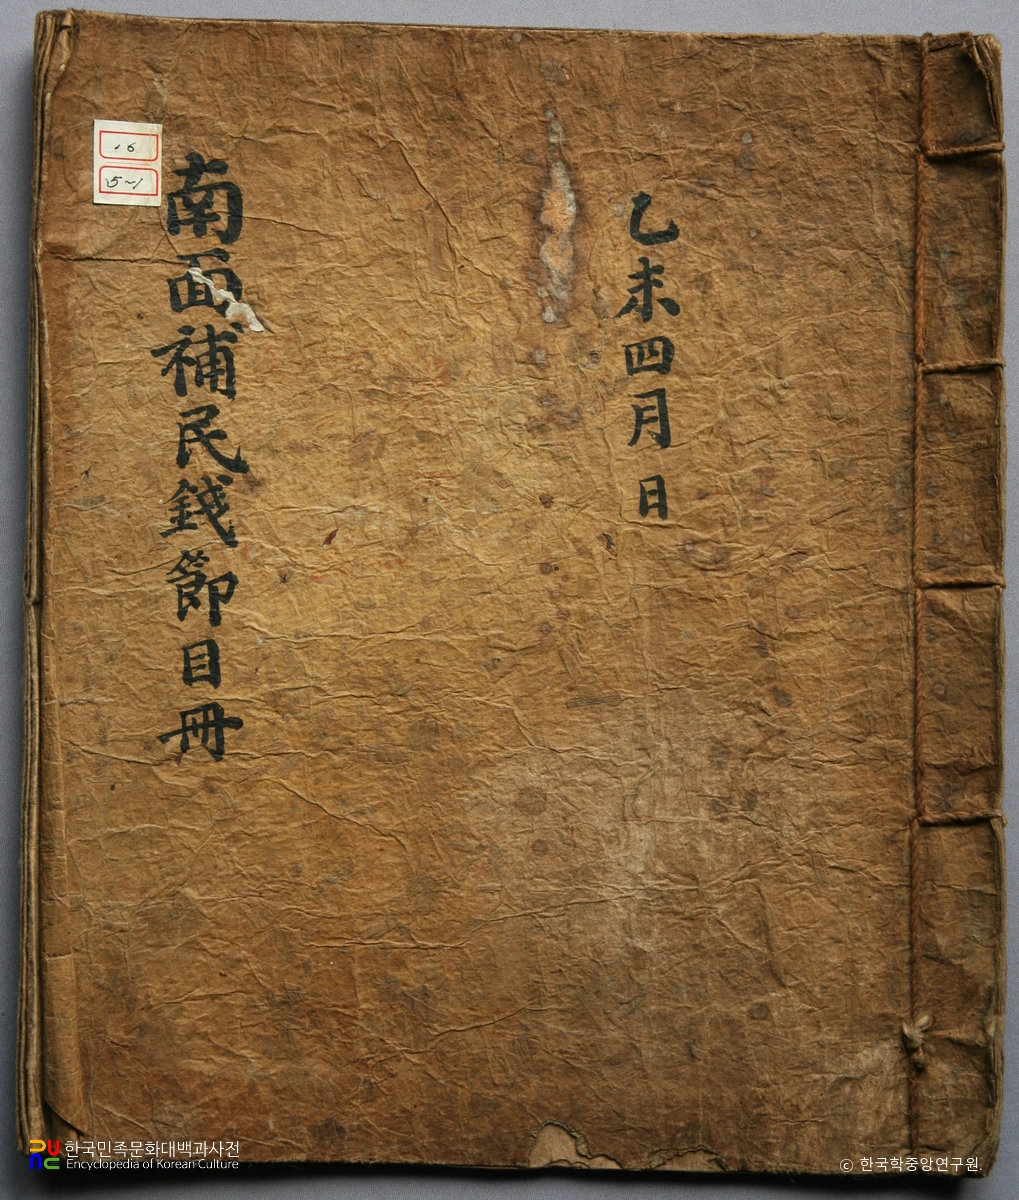 乙未四月 日
南面補民錢節目冊
16
5~1
한국민족문화대백과사전
Encyclopedia of Korean Culture
© 한국학중앙연구원.